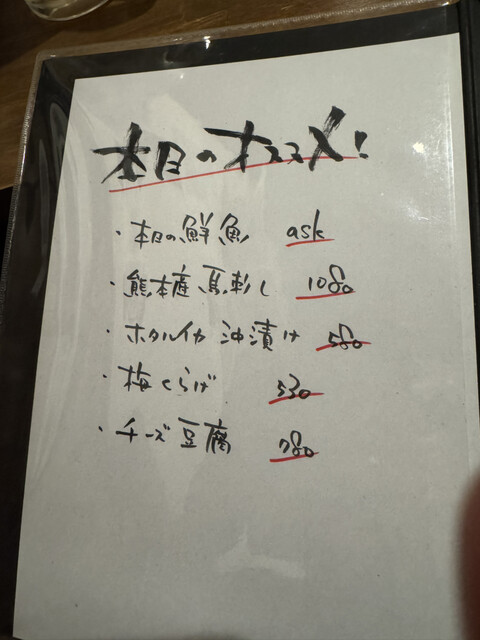 本日のオススメ!
・本日の鮮魚 ask
・熊本産馬刺し 1080
・ホタルイカ沖漬け 580
・梅くらげ 530
・チーズ豆腐 780